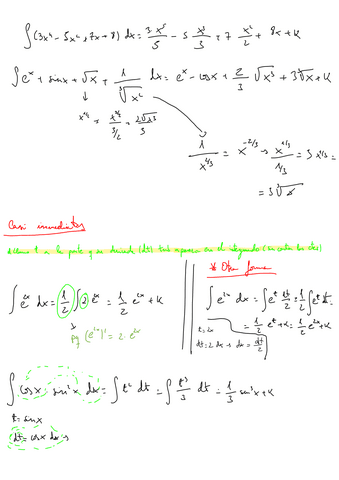 ∫(3x⁴ - 5x² + 7x + 8) dx = 3 x⁵/5 - 5 x³/3 + 7 x²/2 + 8x + K
∫ eˣ + sinx + √x + 1/∛x² dx = eˣ - cosx + 2/3 √x³ + 3∛x + K
x^1/2 = x^3/2 / 3/2 = 2√x³/3
1/x^2/3 = x^-2/3 → x^1/3 / 1/3 = 3 x^1/3 =
= 3∛x
Casi immediatos
* Otra forma
∫ e²ˣ dx = 1/2 ∫ 2·e²ˣ = 1/2 e²ˣ + K
(e²ˣ)' = 2·e²ˣ
∫ e²ˣ dx = ∫ eᵗ dt/2 = 1/2 ∫ eᵗ dt =
t = 2x
= 1/2 eᵗ + K = 1/2 e²ˣ + K
dt = 2dx → dx = dt/2
∫ cosx · sin²x dx = ∫ t² dt = ∫ t³/3 dt = 1/3 sin³x + K
t = sinx
dt = cosx dx →